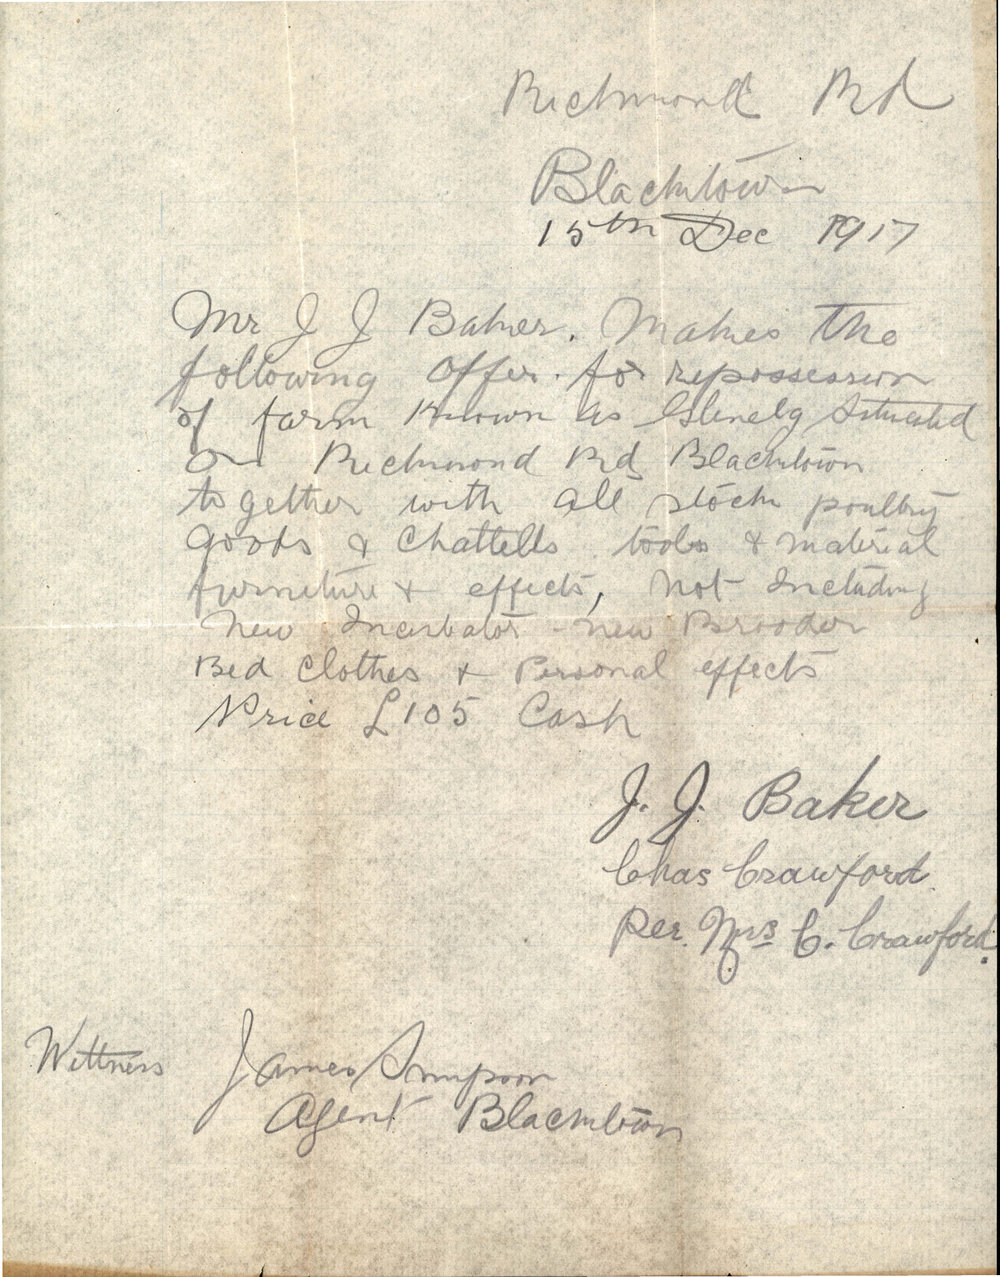 Richmond Rd
Blacktown
15th Dec 1917
Mr J J Baker. Makes the
following Offer. for repossession
of farm Known as Glenelg Situated
on Richmond Rd Blacktown
together with all stock poultry
goods & Chattells tools & material
furniture & effects, not Including
New Incubator - new Brooder
Bed Clothes & Personal effects
Price £105 Cash
J. J. Baker
Chas Crawford.
Per. Mrs C. Crawford.
Wittness James Simpson
Agent Blacktown